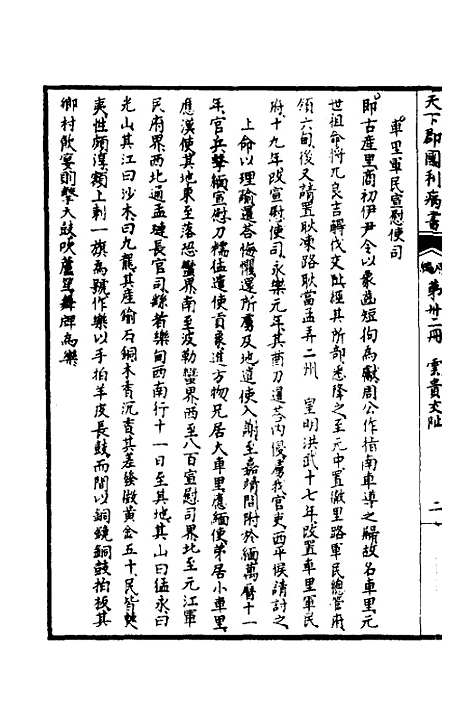 天下郡國利病書
第卅二冊 雲貴交阯
二
車里軍民宣慰使司
即古產里商初伊尹令以象齒短狗為獻周公作指南車導之歸故名車里元
世祖命將兀良吉觧伐交阯經其所部悉降之至元中置徹里路軍民總管府
領六甸後又請置耿凍路耿當孟弄二州 皇明洪武十七年改置車里軍民
府十九年改宣慰使司永樂元年其酋刀暹荅內侵虜我官吏西平侯請討之
上命以理諭暹荅悔懼還所虜及地遣使入謝至嘉靖間附於緬萬曆十一
年官兵擊緬宣慰刀糯猛遣使貢象進方物兄居大車里應緬使弟居小車里
應漢使其地東至落恐蠻界南至波勒蠻界西至八百宣慰司界北至元江軍
民府界西北通孟璉長官司縣若樂甸西南行十一日至其地其山曰猛永曰
光山其江曰沙木曰九龍其產鍮石銅木香沉香其差發徵黃金五十民皆僰
夷性頗淳額上刺一旗為號作樂以手拍羊皮長鼓而間以銅鐃銅鼓拍板其
鄉村飲宴則擊大鼓吹蘆笙舞牌為樂